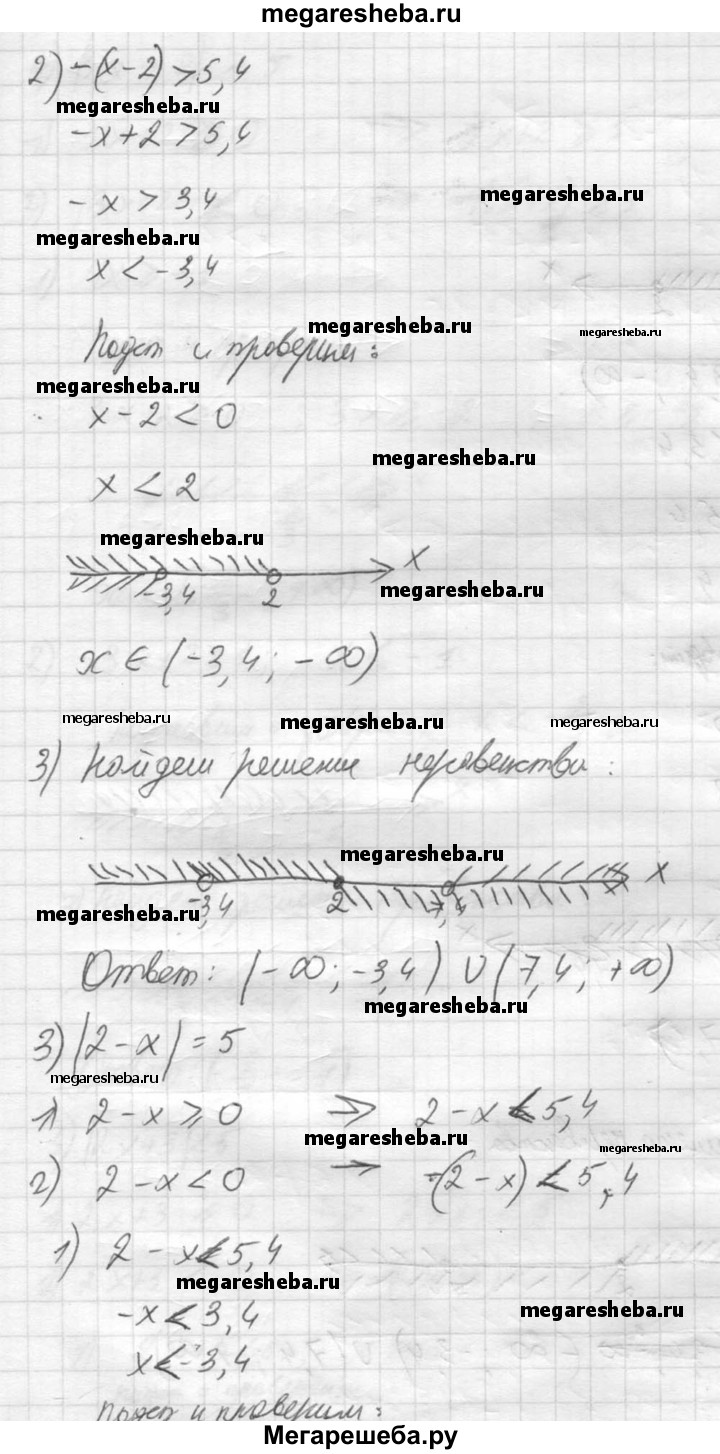 megaresheba.ru
2) -(x-2) > 5,4
megaresheba.ru
-x+2 > 5,4
megaresheba.ru
-x > 3,4
megaresheba.ru
x < -3,4
megaresheba.ru
megaresheba.ru
Подст и проверим:
megaresheba.ru
x-2 < 0
megaresheba.ru
x < 2
megaresheba.ru
x
megaresheba.ru
-3,4 2
x ∈ (-3,4; -∞)
megaresheba.ru megaresheba.ru megaresheba.ru
3) Найдем решение неравенства:
megaresheba.ru
x
megaresheba.ru
-3,4 2 7,4
Ответ: (-∞; -3,4) ∪ (7,4; +∞)
megaresheba.ru
3) |2-x| = 5
megaresheba.ru
1) 2-x ⩾ 0 => 2-x ⩽ 5,4
megaresheba.ru
megaresheba.ru
2) 2-x < 0 → -(2-x) ⩽ 5,4
1) 2-x ⩽ 5,4
megaresheba.ru
-x ⩽ 3,4
megaresheba.ru
x ⩽ -3,4
Подст и проверим:
Мегарешеба.ру